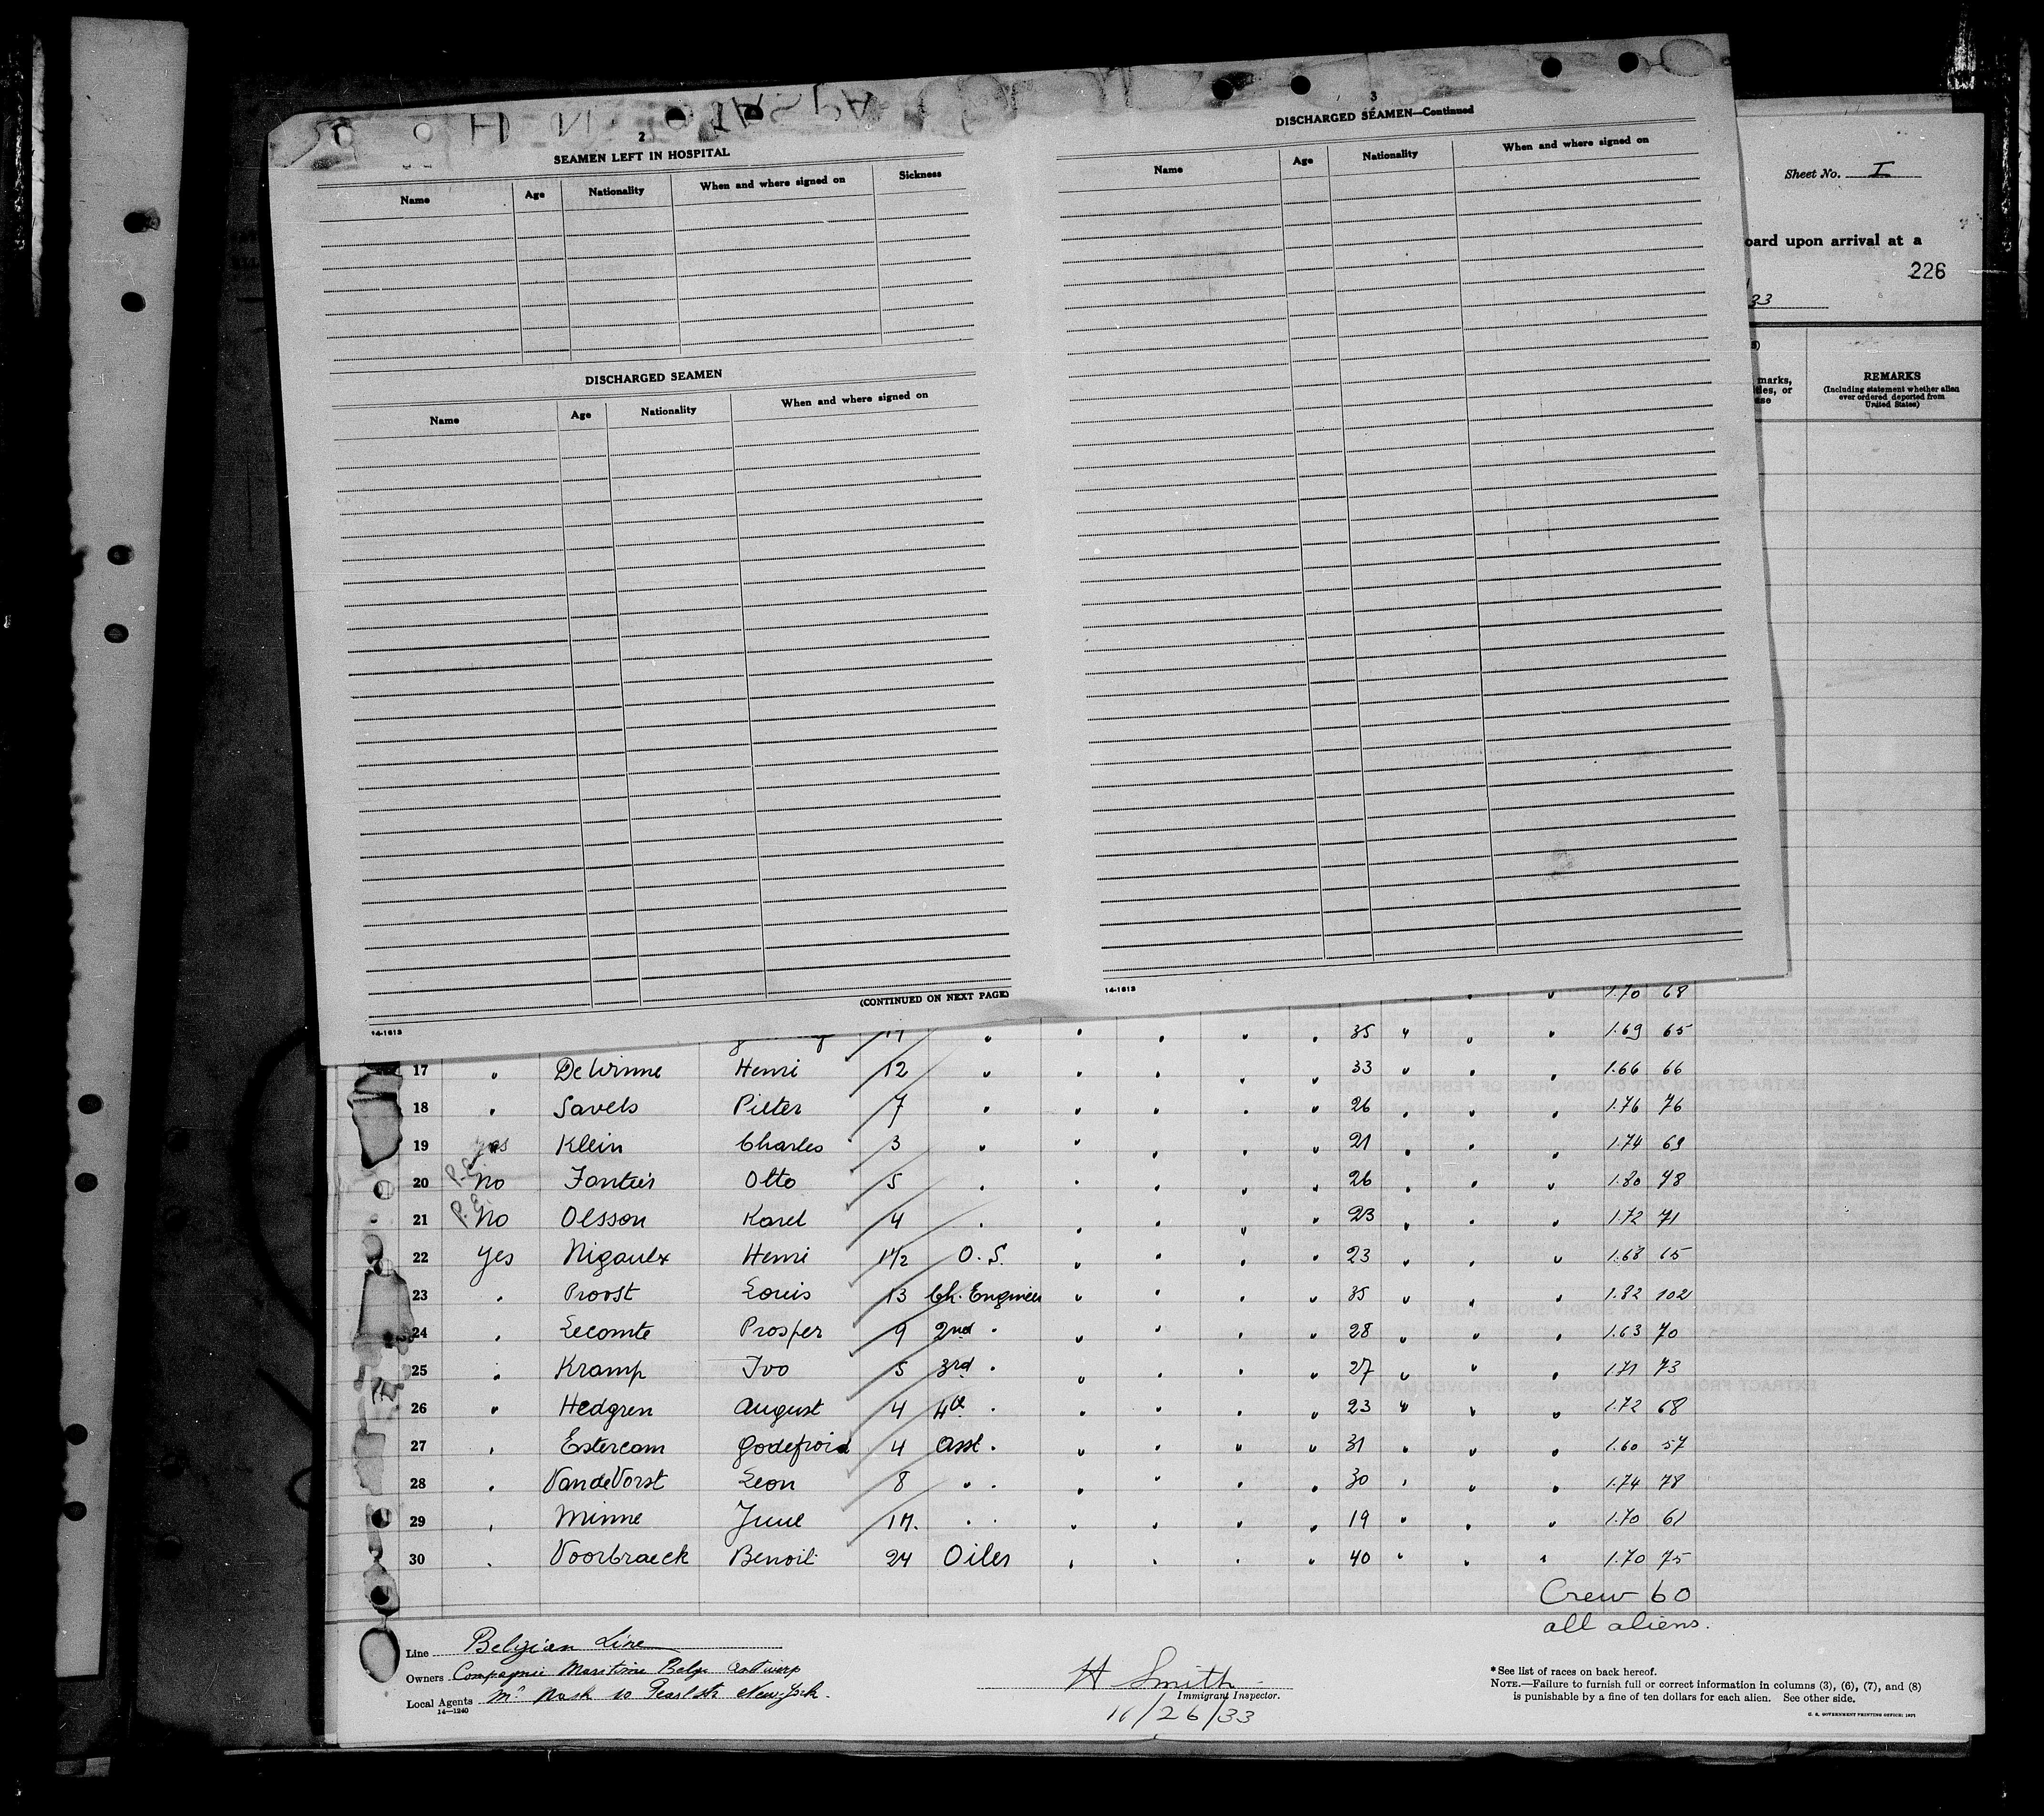 2
SEAMEN LEFT IN HOSPITAL
Name Age Nationality When and where signed on Sickness
DISCHARGED SEAMEN
Name Age Nationality When and where signed on
(CONTINUED ON NEXT PAGE)
14-1613
3
DISCHARGED SEAMEN—Continued
Name Age Nationality When and where signed on
14-1613
Sheet No. I
oard upon arrival at a
226
33
marks,
ities, or
ase
REMARKS
(Including statement whether alien
ever ordered deported from
United States)
" 1.70 68
" " " " " 35 " " " 1.69 65
17 " DeWinne Henri 12 " " " " " 33 " " " 1.66 66
18 " Savels Pieter 7 " " " " " 26 " " " 1.76 76
19 yes Klein Charles 3 " " " " " 21 " " " 1.74 69
20 P.E. no Fontier Otto 5 " " " " " 26 " " " 1.80 78
21 P.E. no Olsson Karel 4 " " " " " 23 " " " 1.72 71
22 yes Nigaulx Henri 1 1/2 O.S. " " " " 23 " " " 1.68 65
23 " Proost Louis 13 Ch. Engineer " " " " 35 " " " 1.82 102
24 " Lecomte Prosper 9 2nd " " " " " 28 " " " 1.63 70
25 " Kramp Ivo 5 3rd " " " " " 27 " " " 1.71 73
26 " Hedgren August 4 4th " " " " " 23 " " " 1.72 68
27 " Estercam Godefroid 4 Asst " " " " " 31 " " " 1.60 57
28 " VandeVorst Leon 8 " " " " " " 30 " " " 1.74 78
29 " Minne 17. " " " " " " 19 " " " 1.70 61
30 " Voorbraeck Benoit 24 Oiler " " " " 40 " " " 1.70 75
Crew 60
all aliens.
Line Belgian Line
Owners Compagnie Maritime Belge Antwerp
Local Agents Mr Nash 10 Pearl str New-York.
14—1240
H Smith
Immigrant Inspector.
11/26/33
*See list of races on back hereof.
NOTE.—Failure to furnish full or correct information in columns (3), (6), (7), and (8)
is punishable by a fine of ten dollars for each alien. See other side.
U. S. GOVERNMENT PRINTING OFFICE: 1931